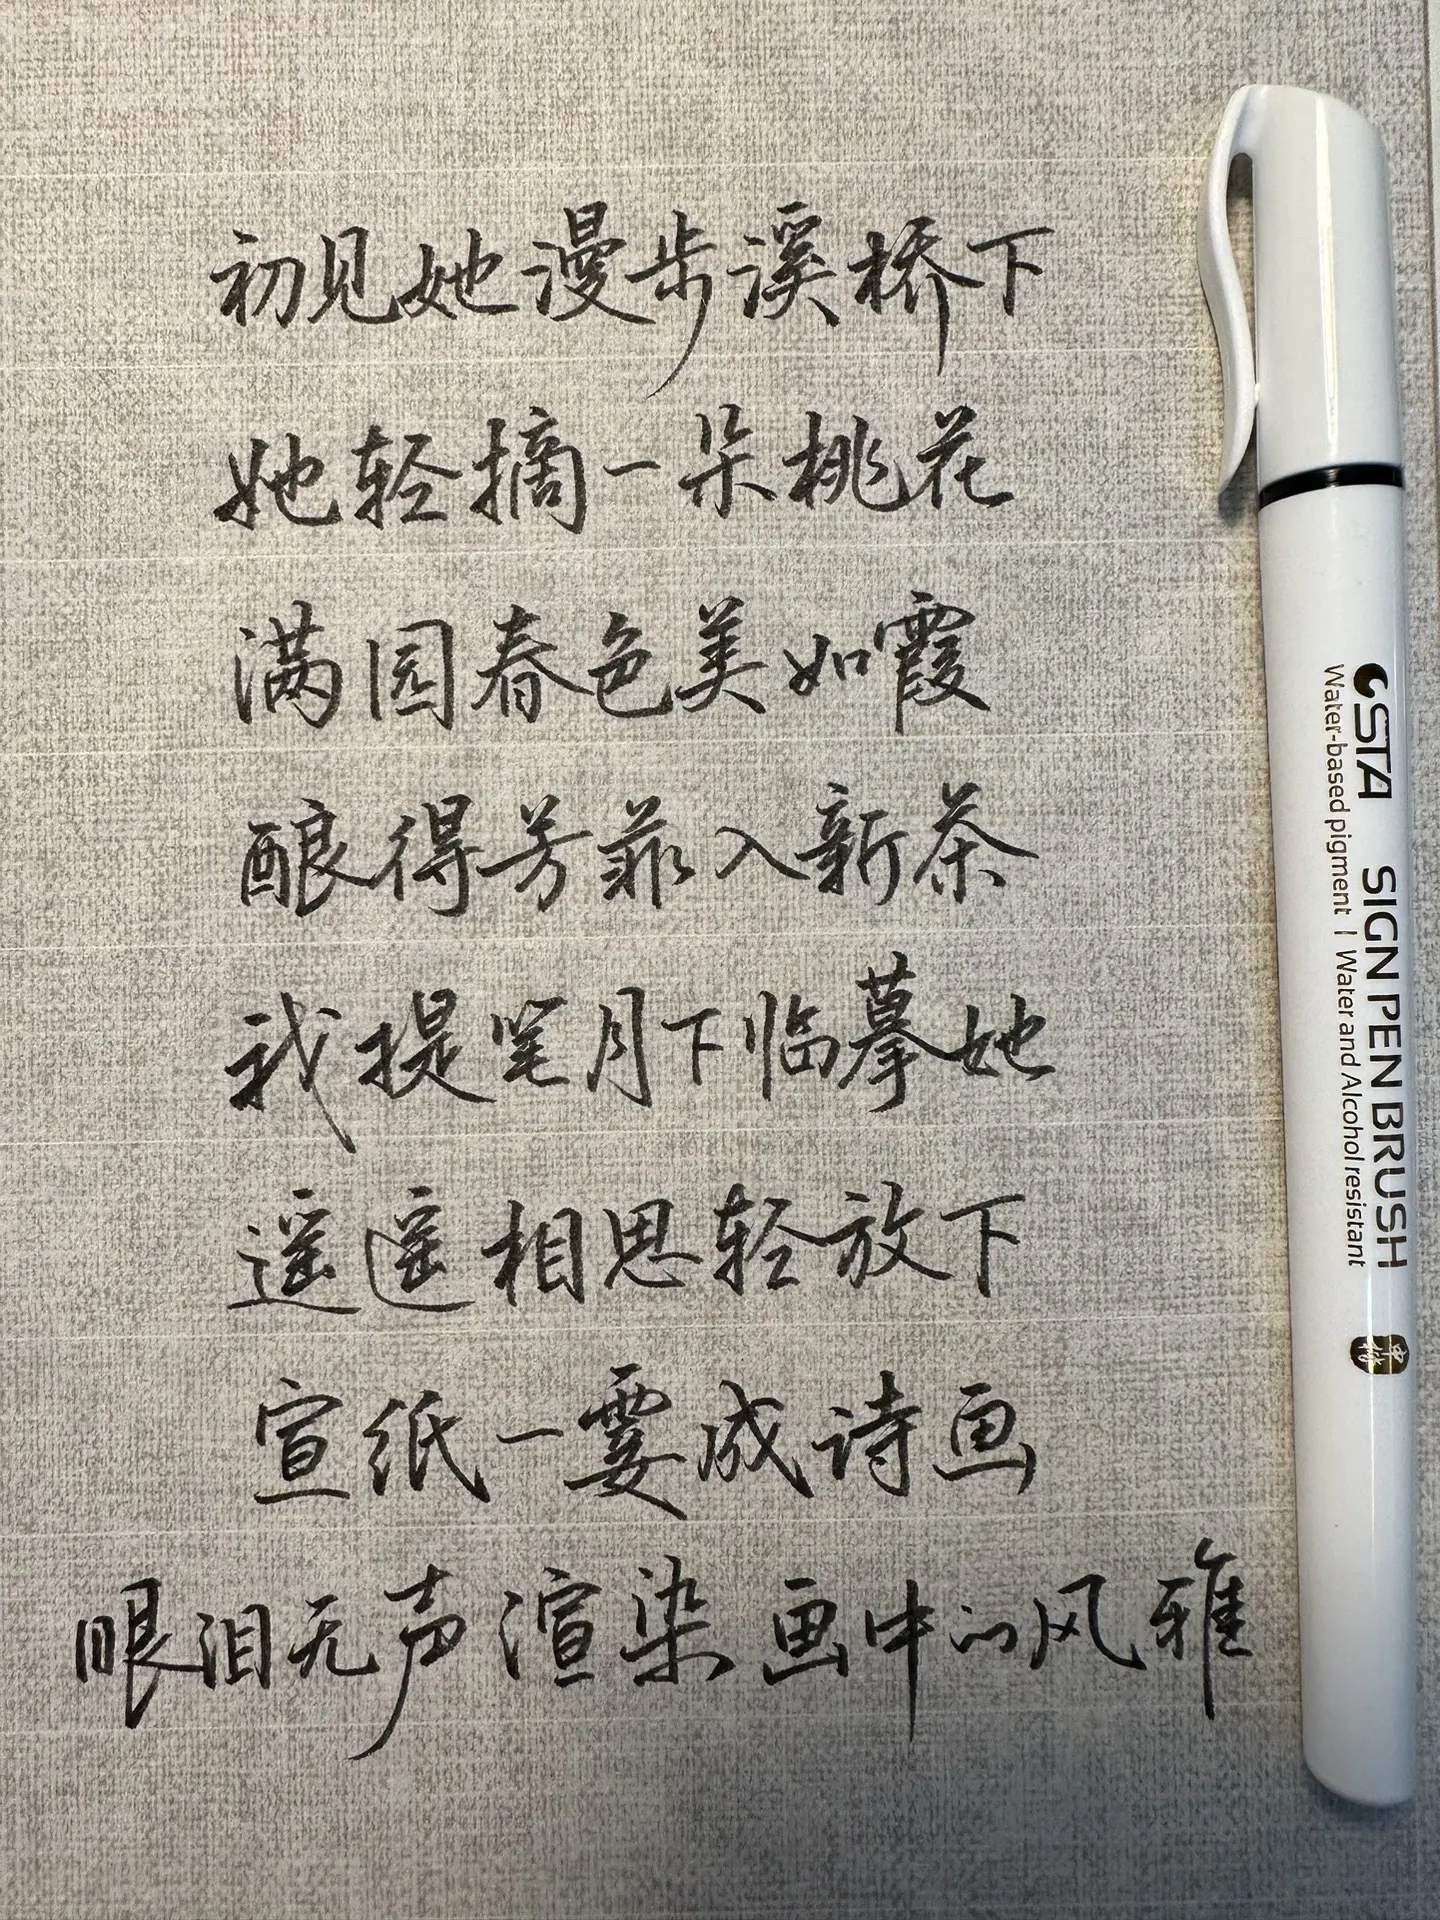 初见她漫步溪桥下
她轻摘一朵桃花
满园春色美如霞
酿得芳菲入新茶
我提笔月下临摹她
遥遥相思轻放下
宣纸一霎成诗画
眼泪无声渲染画中的风雅
STA SIGN PEN BRUSH
Water-based pigment | Water and Alcohol resistant